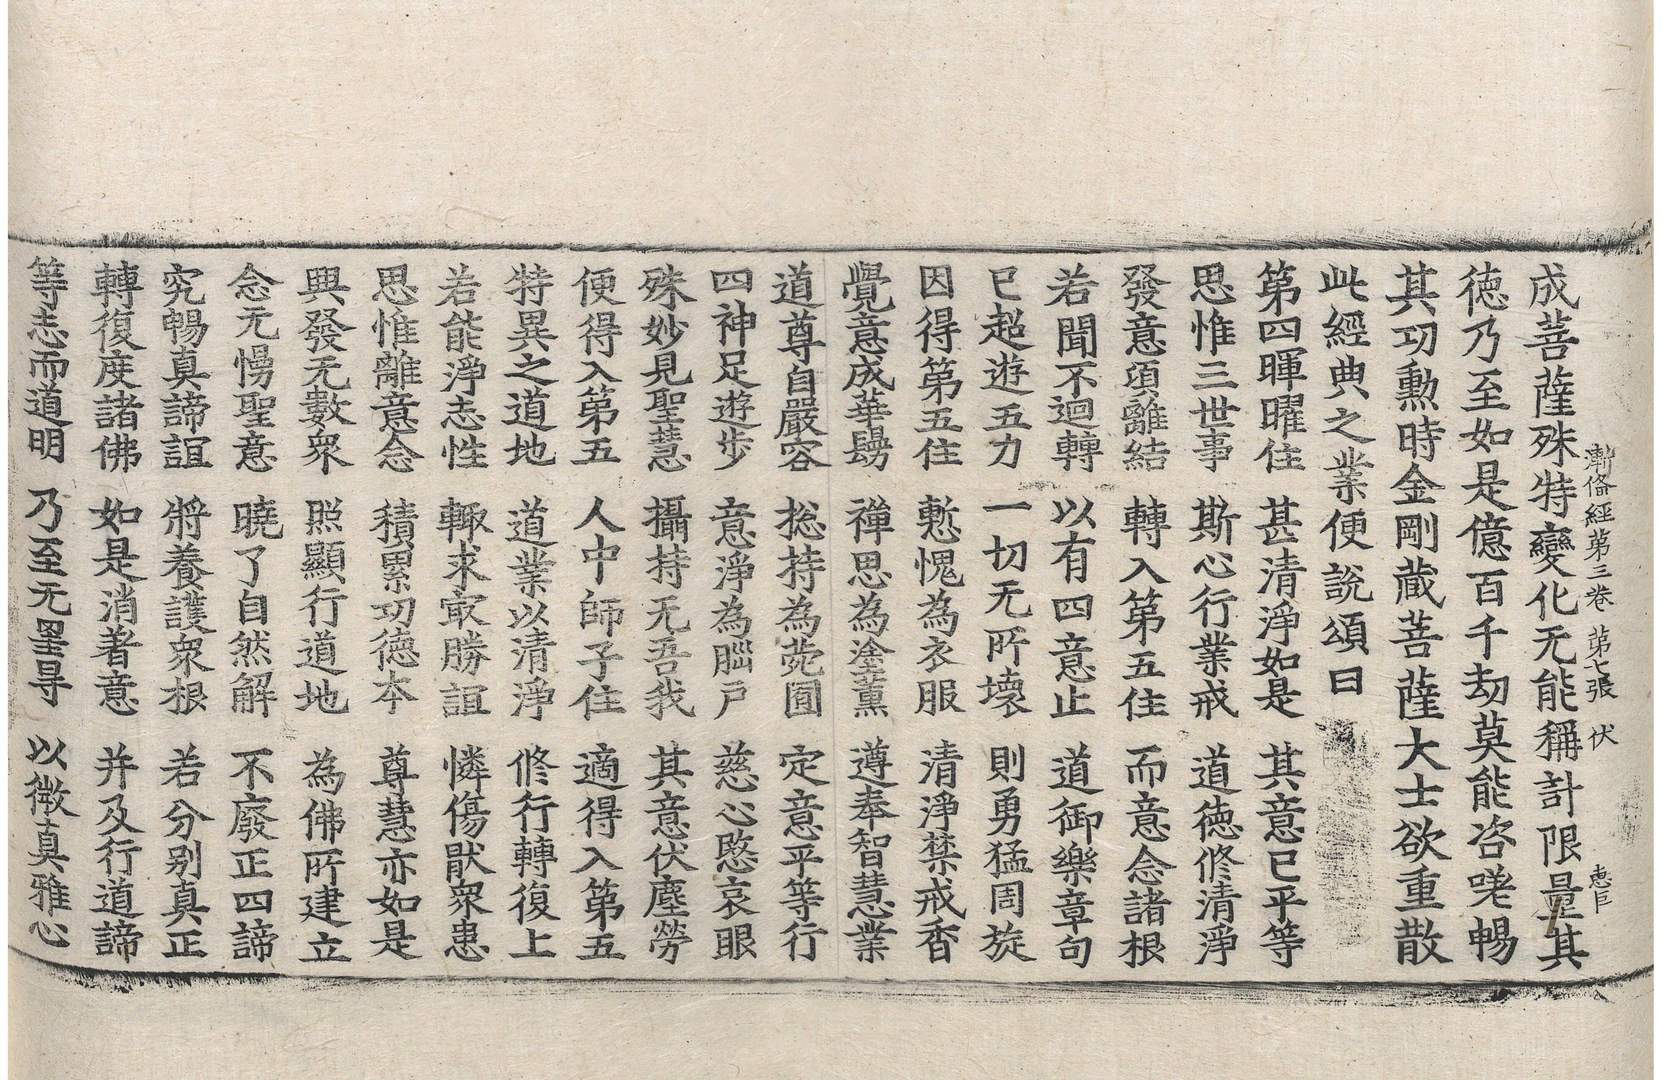 漸俻經第三巻 第七張 伏
成菩薩殊特變化无能稱計限量其
徳乃至如是億百千劫莫能咨嗟暢
其功勳時金剛蔵菩薩大士欲重散
此經典之業便說頌曰
第四暉曜住 甚清淨如是 其意已平等
思惟三世事 斯心行業戒 道徳修清淨
發意須離結 轉入第五住 而意念諸根
若聞不迴轉 以有四意止 道御樂章句
已超遊五力 一切无所壊 則勇猛周旋
因得第五住 慙愧為衣服 清淨禁戒香
覺意成華鬘 禪思為塗薰 遵奉智慧業
道尊自嚴容 捴持為菀囿 定意平等行
四神足遊步 意淨為𦙄戸 慈心愍哀眼
殊妙見聖慧 攝持无吾我 其意伏塵勞
便得入第五 人中師子住 適得入第五
特異之道地 道業以清淨 修行轉復上
若能淨志性 輙求㝡勝誼 憐傷猒衆患
思惟離意念 積累功徳本 尊慧亦如是
興發无數衆 照顯行道地 為佛所建立
念无愓聖意 曉了自然解 不廢正四諦
究暢真諦誼 將養護衆根 若分别真正
轉復度諸佛 如是消著意 并及行道諦
等志而道明 乃至无罣㝵 以微真雅心